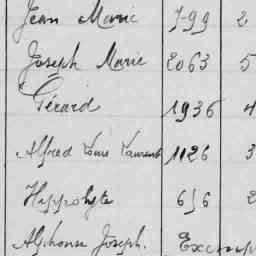 Jean Marie 799 2
Joseph Marie 2063 5
Gérard 1936 4
Alfred Louis Laurent 1126 3
Hippolyte 656 2
Alphonse Joseph.